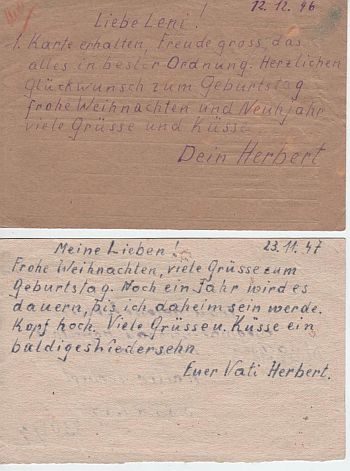 12.12.46
Liebe Leni!
1. Karte erhalten, Freude gross, das
alles in bester Ordnung. Herzlichen
Glückwunsch zum Geburtstag
frohe Weihnachten und Neuhjahr
viele Grüsse und Küsse
Dein Herbert
Meine Lieben! 23.11.47
Frohe Weihnachten, viele Grüsse zum
Geburtstag. Noch ein Jahr wird es
dauern, bis ich daheim sein werde.
Kopf hoch. Viele Grüsse u. Küsse ein
baldiges Wiedersehn
Euer Vati Herbert.